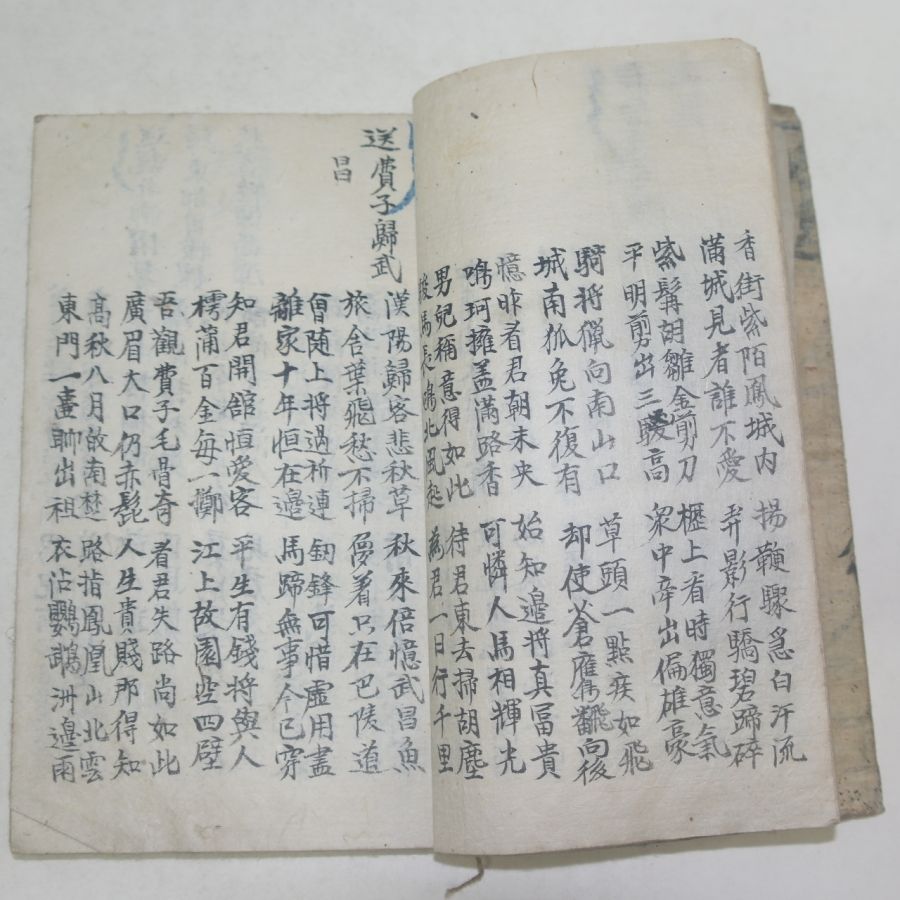 香街紫陌鳳城內
滿城見者誰不愛
揚鞭驟急白汗流
弄影行驕碧蹄碎
紫髯胡雛金剪刀
平明剪出三騣高
櫪上看時獨意氣
衆中牽出偏雄豪
騎將獵向南山口
城南狐兔不復有
草頭一點疾如飛
却使蒼鷹翻向後
憶昨看君朝未央
鳴珂擁盖滿路香
始知邊將真冨貴
可憐人馬相輝光
男兒稱意得如此
駿馬長鳴北風起
待君東去掃胡塵
為君一日行千里
送費子歸武
昌
漢陽歸客悲秋草
旅舍葉飛愁不掃
秋來倍憶武昌魚
夢着只在巴陵道
曾随上將過祈連
離家十年恒在邊
劒鋒可惜虛用盡
馬蹄無事今已穿
知君開舘恒愛客
樗蒲百金每一擲
平生有錢將與人
江上故園空四壁
吾觀費子毛骨奇
廣眉大口仍赤髭
看君失路尚如此
人生貴賤那得知
高秋八月故南楚
東門一壺聊出祖
路指鳳凰山北雲
衣沾鸚鵡洲邊雨